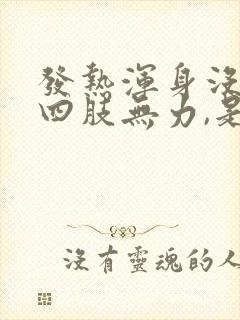 發熱渾身沒
四肢無力,是
沒有靈魂的人